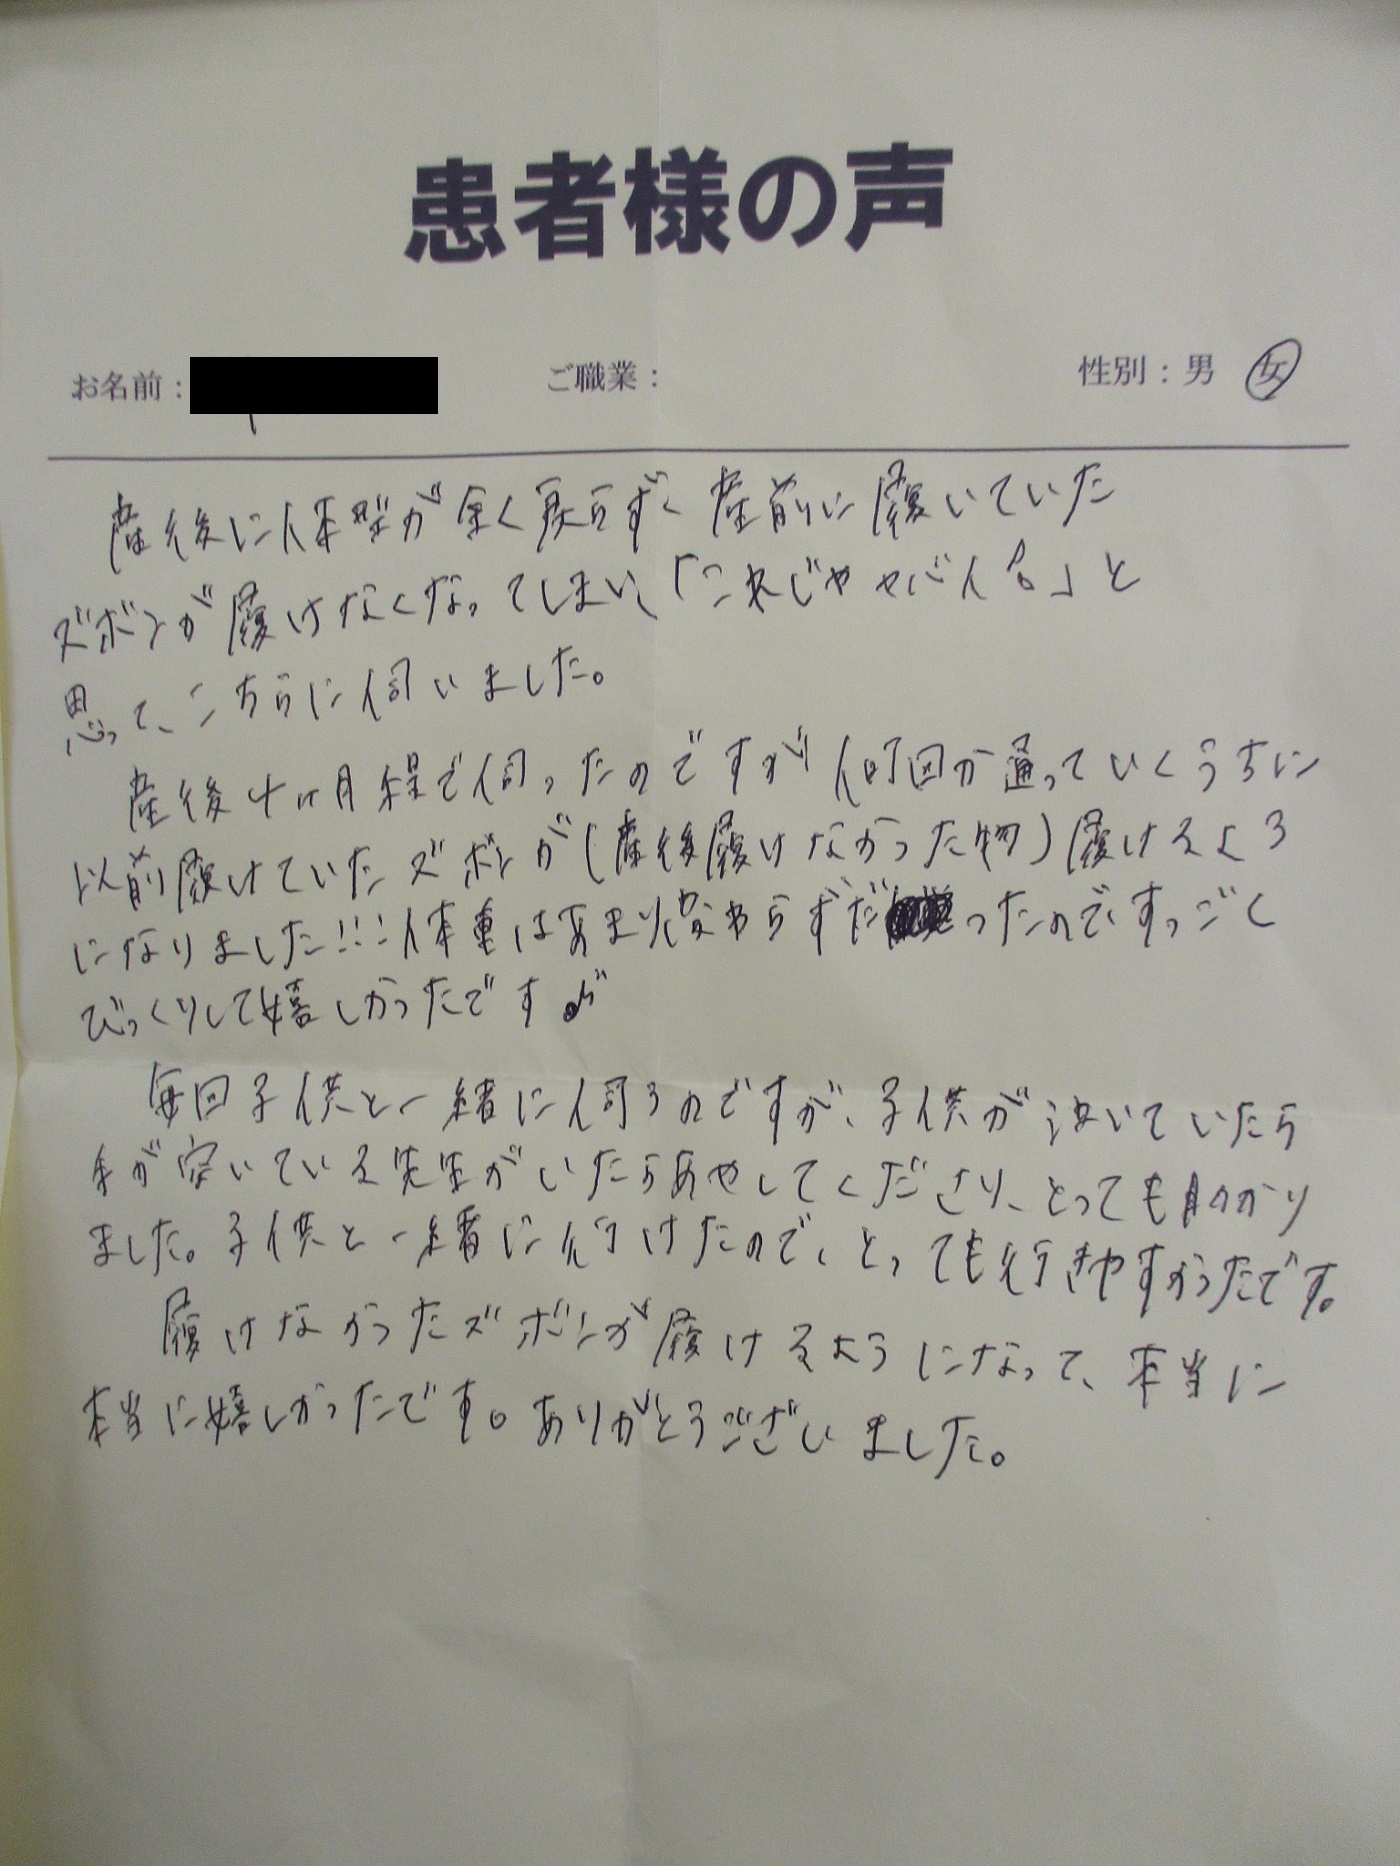 患者様の声
お名前： ご職業： 性別：男 女
産後に体型が全く戻らず、産前に履いていた
ズボンが履けなくなってしまい、「これじゃヤバイ!。」と
思って、こちらに伺いました。
産後ヶ月程で伺ったのですが何回か通っていくうちに
以前履けていたズボンが(産後履けなかった物)履けるよう
になりました!!!体重はあまり変わらずだったのですっごく
びっくりして嬉しかったです♪
毎回子供と一緒に伺うのですが、子供が泣いていたら
手が空いている先生がいたらあやしてくださり、とっても助かり
ました。子供と一緒に行けたので、とっても行きやすかったです。
履けなかったズボンが履けるようになって、本当に
本当に嬉しかったです。ありがとうございました。